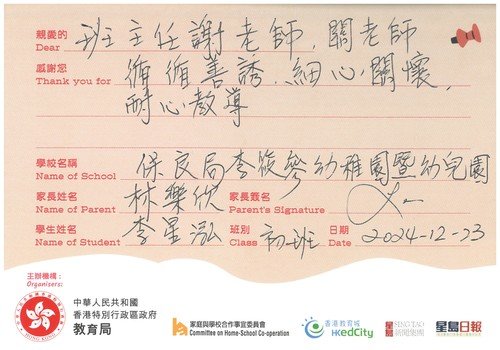 親愛的 班主任謝老師,關老師
Dear
感謝您 循循善誘,細心關懷,
Thank you for
耐心教導
學校名稱 保良局李筱參幼稚園暨幼兒園
Name of School
家長姓名 林樂欣 家長簽名
Name of Parent Parent's Signature
學生姓名 李星泓 班別 初班 日期 2024-12-23
Name of Student Class Date
主辦機構:
Organisers:
中華人民共和國
香港特別行政區政府
教育局
家庭與學校合作事宜委員會
Committee on Home-School Co-operation
香港教育城
HKedCity
星島 SING TAO
新聞集團
星島日報